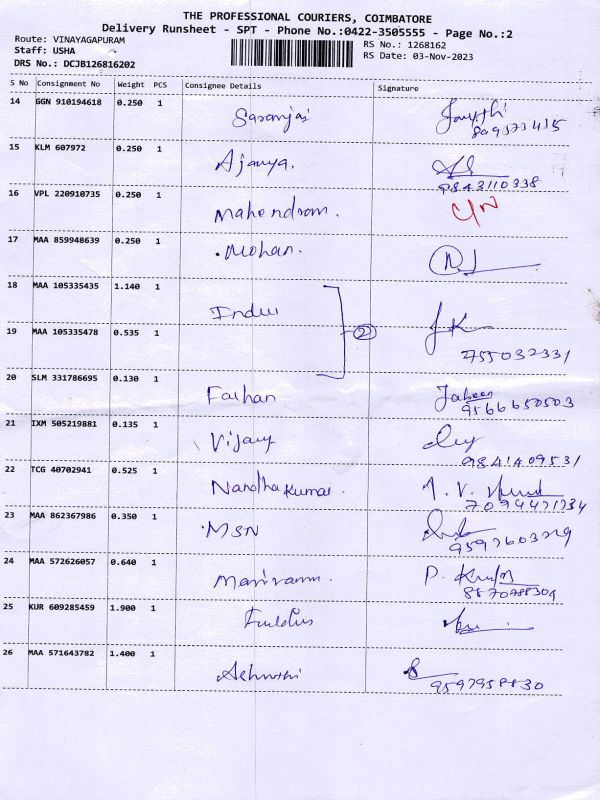 THE PROFESSIONAL COURIERS, COIMBATORE
Delivery Runsheet - SPT - Phone No.:0422-3505555 - Page No.:2
Route: VINAYAGAPURAM
Staff: USHA
DRS No.: DCJB126816202
RS No.: 1268162
RS Date: 03-Nov-2023
S No Consignment No Weight PCS Consignee Details Signature
14 GGN 910194618 0.250 1
15 KLM 607972 0.250 1 Ajanya.
9843110338
16 VPL 220910735 0.250 1 Mahendram. C/N
17 MAA 859948639 0.250 1 Mohan.
18 MAA 105335435 1.140 1 Indu
19 MAA 105335478 0.535 1 2
755032331
20 SLM 331786695 0.130 1 Farhan
9566650503
21 IXM 505219881 0.135 1 Vijay
9841409531
22 TCG 40702941 0.525 1 Nandhakumar.
23 MAA 862367986 0.350 1 MSN
24 MAA 572626057 0.640 1
25 KUR 609285459 1.900 1
26 MAA 571643782 1.400 1 Ashwathi